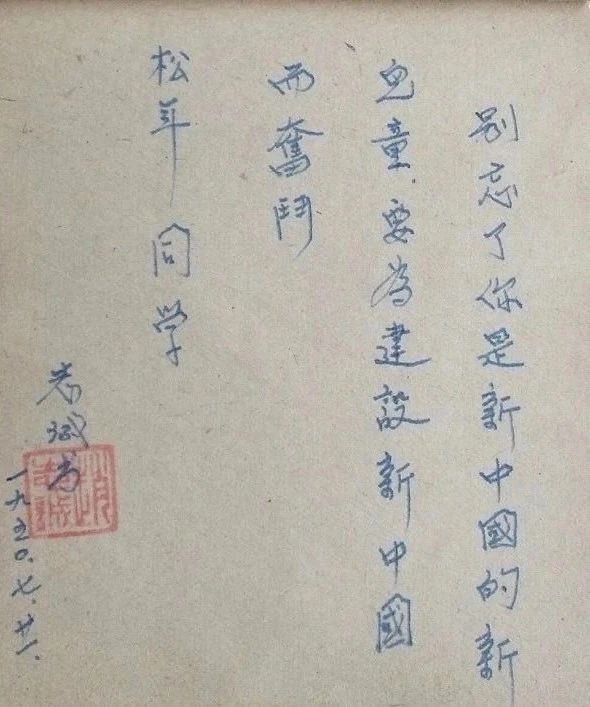 别忘了你是新中國的新
兒童.要為建設新中國
而奮鬥
松年同学
志誠书
一九五〇.七.廿一.